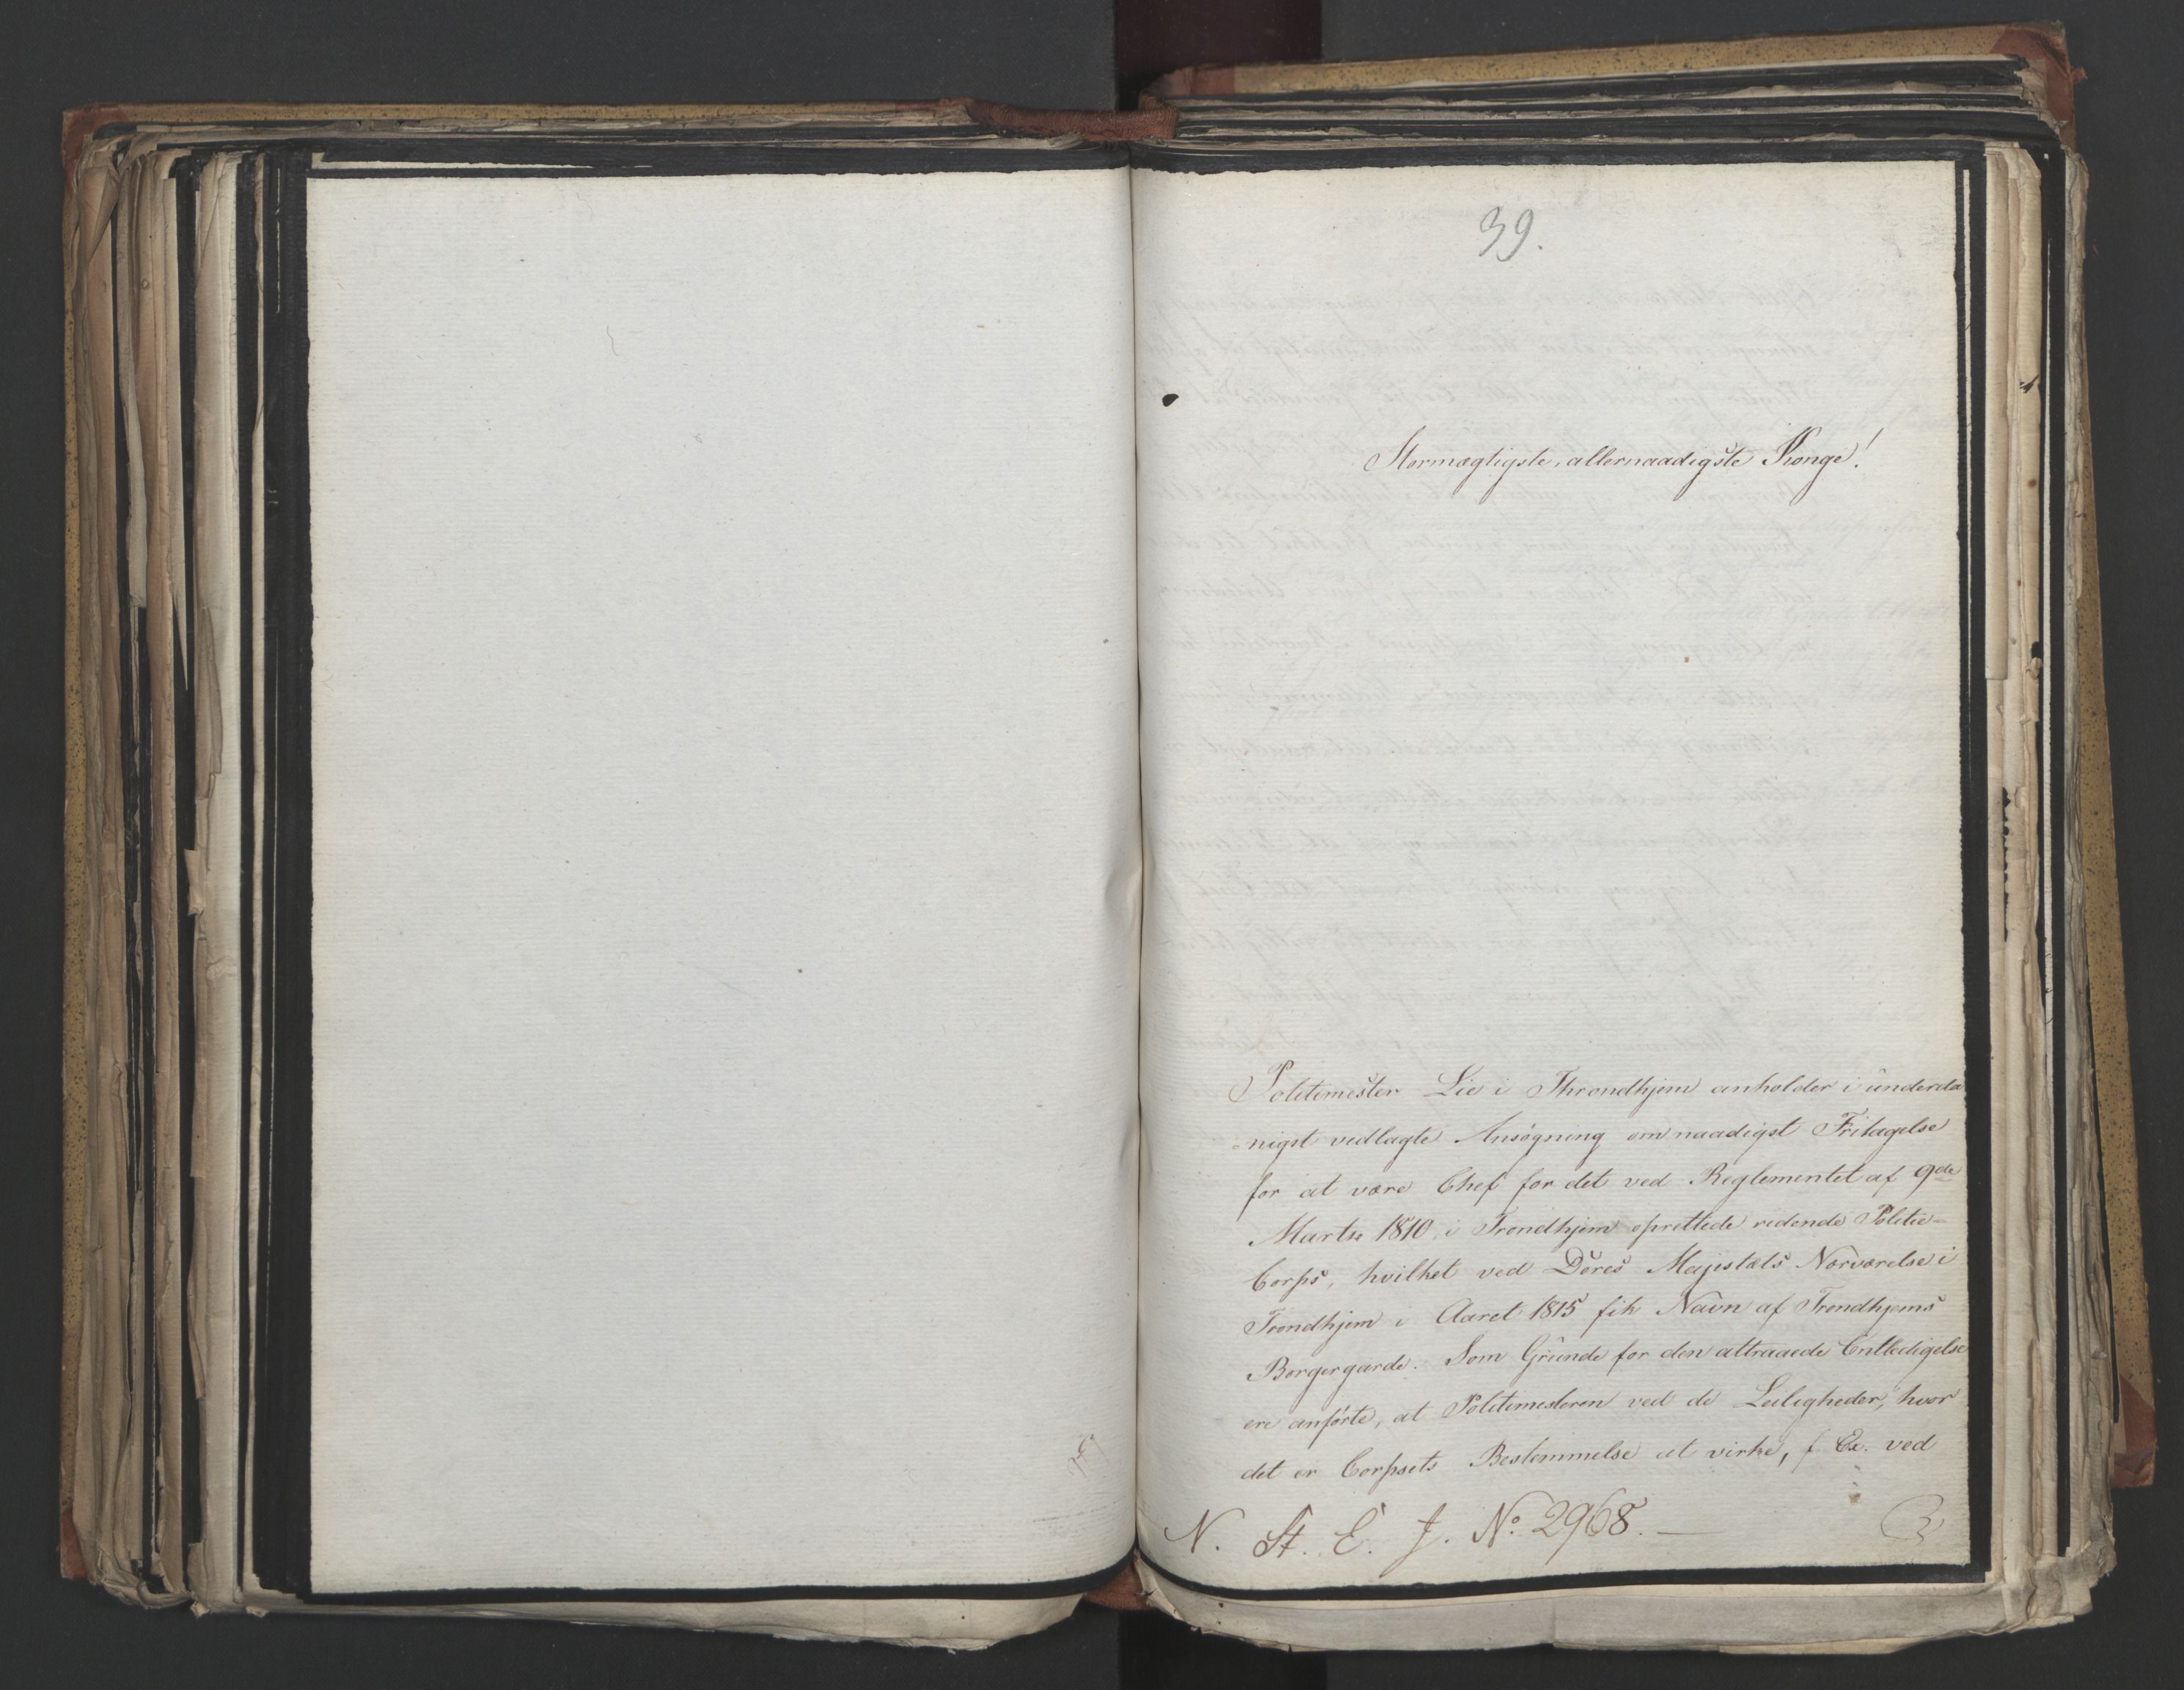 39.
Stormægtigste, allernaadigste Konge!
Politimester Lie i Throndhjem anholder i underda
nigst vedlagte Ansøgning om naadigst Fritagelse
for at være Chef for det ved Reglementet af 9de
Marts 1810 i Trondhjem oprettede ridende Politie-
Corps, hvilket ved Deres Majestæts Nærværelse i
Trondhjem i Aaret 1815 fik Navn af Trondhjems
Borgergarde. Som Grunde for den attraaede Entledigelse
ere anførte, at Politimesteren ved de Leiligheder, hvor
det er Corpsets Bestemmelse at virke, f Ex. ved
N. St. E. J. No. 2968.